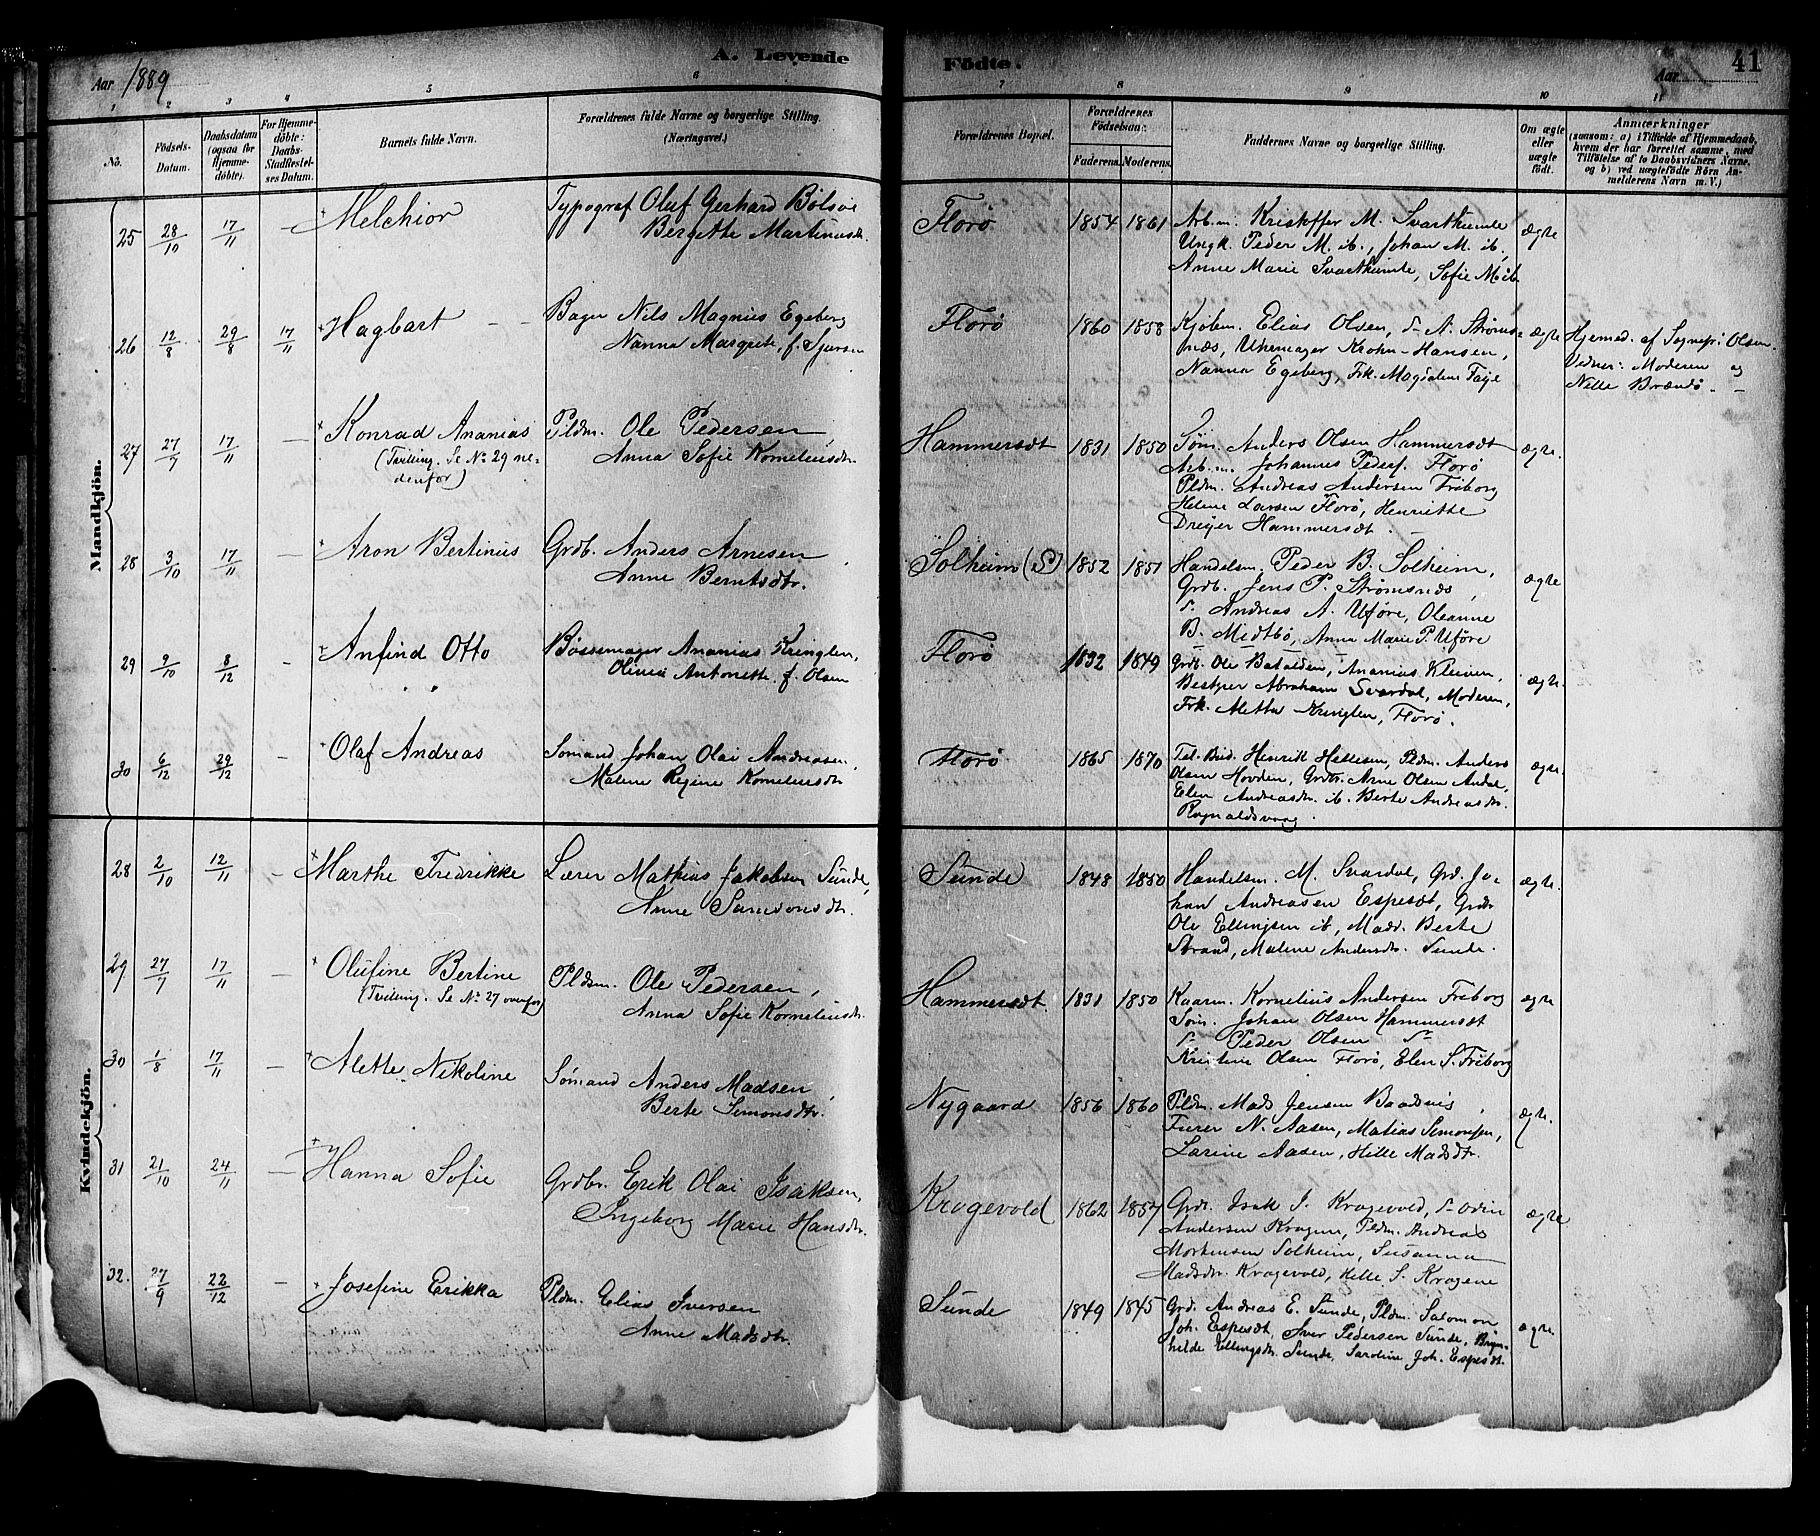 A. Levende Födte. 41
Aar 1889 Aar
1 2 3 4 5 6 7 8 9 10 11
No.
Födsels-Datum.
Daabsdatum (ogsaa för Hjemme-döbte).
For Hjemme-döbte: Daabs-Stadfæstel-ses Datum.
Barnets fulde Navn.
Forældrenes fulde Navne og borgerlige Stilling. (Næringsvei.)
Forældrenes Bopæl.
Forældrenes Födselsaar:
Faderens. Moderens.
Faddernes Navne og borgerlige Stilling.
Om ægte eller uægte födt.
Anmærkninger
(saasom: a) i Tilfælde af Hjemmedaab, hvem der har forrettet samme, med Tilföielse af to Daabsvidners Navne, og b) ved uægtefödte Börn An-melderens Navn m. V.)
Mandkjön.
25 28/10 17/11 — Melchior
Typograf Oluf Gerhard Bölsoe
Bergette Martinusdr.
Florö 1854 1861
Arb.m. Kristoffer M. Svarthumle
Ungk. Peder M. ib., Johan M. ib,
Anne Marie Svarthumle, Sofie M. ib.
ægte
26 12/8 29/8 17/11 Hagbart
Bager Nils Magnus Egeberg
Nanna Margrete, f. Sjursen
Florö 1860 1858
Kjöbm. Elias Olsen, do A. Ströms-
næs, Uhrmager Krohn-Hansen,
Nanna Egeberg, Frk. Magdalene Faye
ægte
Hjemmed. af Sognepr. Olsen.
Vidner: Moderen og
Nelle Brændö. —
27 27/7 17/11 — Konrad Ananias
(Tvilling. Se No 29 ne-
denfor)
Pldm. Ole Pedersen,
Anna Sofie Korneliusdr.
Hammersdt 1831 1850
Söm. Anders Olsen Hammersdt
Arb.m. Johannes Peders. Florö
Pldm. Andreas Andersen Friborg
Helene Larsen Florö, Henriette
Dreyer Hammersdt.
ægte.
28 3/10 17/11 — Aron Bertinus
Grdb. Anders Arnesen,
Anne Berntsdtr.
Solheim (S) 1852 1851
Handelsm. Peder B. Solheim,
Grdb. Jens P. Strömsnæs,
do Andreas A. Uföre, Oleanne
B. Midtbö, Anna Marie P. Uföre
ægte
29 9/10 8/12 - Anfind Otto
Bössemager Ananias Kringlen,
Olivia Antonette f. Olsen
Florö 1832 1849
Grdb. Ole Batalden, Ananias Kleiven,
Bestyrer Abraham Svardal, Moderen,
Frk. Aletta Kringlen, Florö.
ægte.
30 6/12 29/12 - Olaf Andreas
Sömand Johan Olai Andreasen,
Malene Regine Korneliusdr
Florö 1865 1870
Tel. Bud. Henrik Hellesen, Pldm. Anders
Olsen Hovden, Grdbr. Arne Olsen Andal,
Elen Andreasdr. ib. Berte Andreasdr.
Rognaldsvaag.
ægte.
Kvindekjön.
28 2/10 12/11 - Marthe Fredrikke
Lærer Mathias Jakobsen Sunde,
Anne Samsonsdtr.
Sunde 1848 1850
Handelsm. M. Svardal, Grd. Jo-
han Andreasen Espesdt, Grdbr
Ole Ellingsen ib, Madr. Berte
Strand, Malene Andersdr. Sunde.
ægte.
29 27/7 17/11 - Olufine Bertine
(Tvilling. Se No 27 ovenfor)
Pldm. Ole Pedersen,
Anna Sofie Korneliusdr.
Hammersdt. 1831 1850
Kaarm. Kornelius Andersen Friborg
Söm. Johan Olsen Hammersdt
do Peder Olsen do
Kristine Olsen Florö, Elen S. Friborg
ægte
30 1/8 17/11 - Alette Nikoline
Sömand Anders Madsen,
Berte Simonsdtr.
Nygaard 1856 1860
Pldm. Mads Jensen Baadsnæs,
Furer N. Aasen, Matias Simonsen,
Larine Aasen, Helle Madsdtr.
ægte.
31 21/10 24/11 — Hanna Sofie
Grdbr. Erik Olai Isaksen,
Ingeborg Marie Hansdtr.
Krogevold 1862 1857
Grdr. Isak J. Krogevold, do Odin
Andersen Krogene, Pldm. Andreas
Mortensen Solheim, Susanna
Madsdtr. Krogevold, Helle S. Krogene
ægte
32. 27/9 22/12 - Josefine Erikka
Pldm. Elias Iversen
Anne Madsdtr.
Sunde 1849 1845
Grd. Andreas E. Sunde, Pldm. Salomon
Joh. Espesdt, Iver Pedersen Sunde, Bryn-
hilde Ellingsdr. Sunde, Saroline Joh. Espesdt.
ægte.